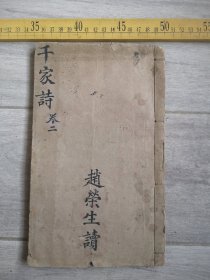 35 40 45 50 55
千家詩 卷二
趙榮生讀